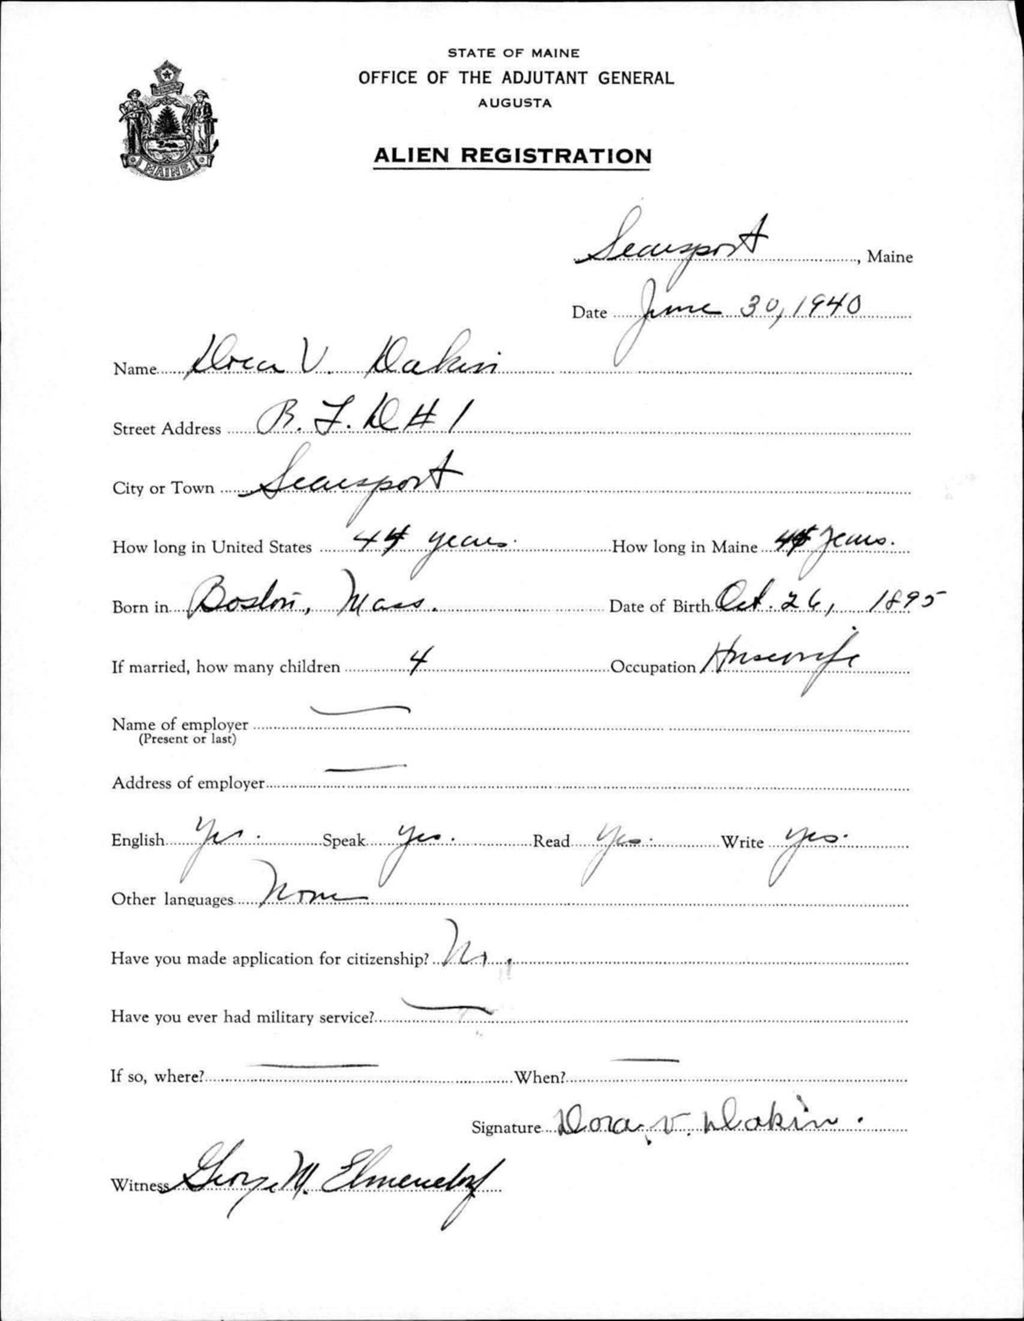 STATE OF MAINE
OFFICE OF THE ADJUTANT GENERAL
AUGUSTA
ALIEN REGISTRATION
MAINE
Searsport, Maine
Date June 30, 1940
Name Dora V. Dakin
Street Address R. F. D # 1
City or Town Searsport
How long in United States 44 years. How long in Maine years.
Born in Boston, Mass. Date of Birth Oct. 26, 1895
If married, how many children 4 Occupation Housewife
Name of employer
(Present or last)
Address of employer
English Yes. Speak yes. Read Yes. Write yes.
Other languages None
Have you made application for citizenship? No.
Have you ever had military service?
If so, where? When?
Signature Dora V. Dakin.
Witness George M. Elmendorf